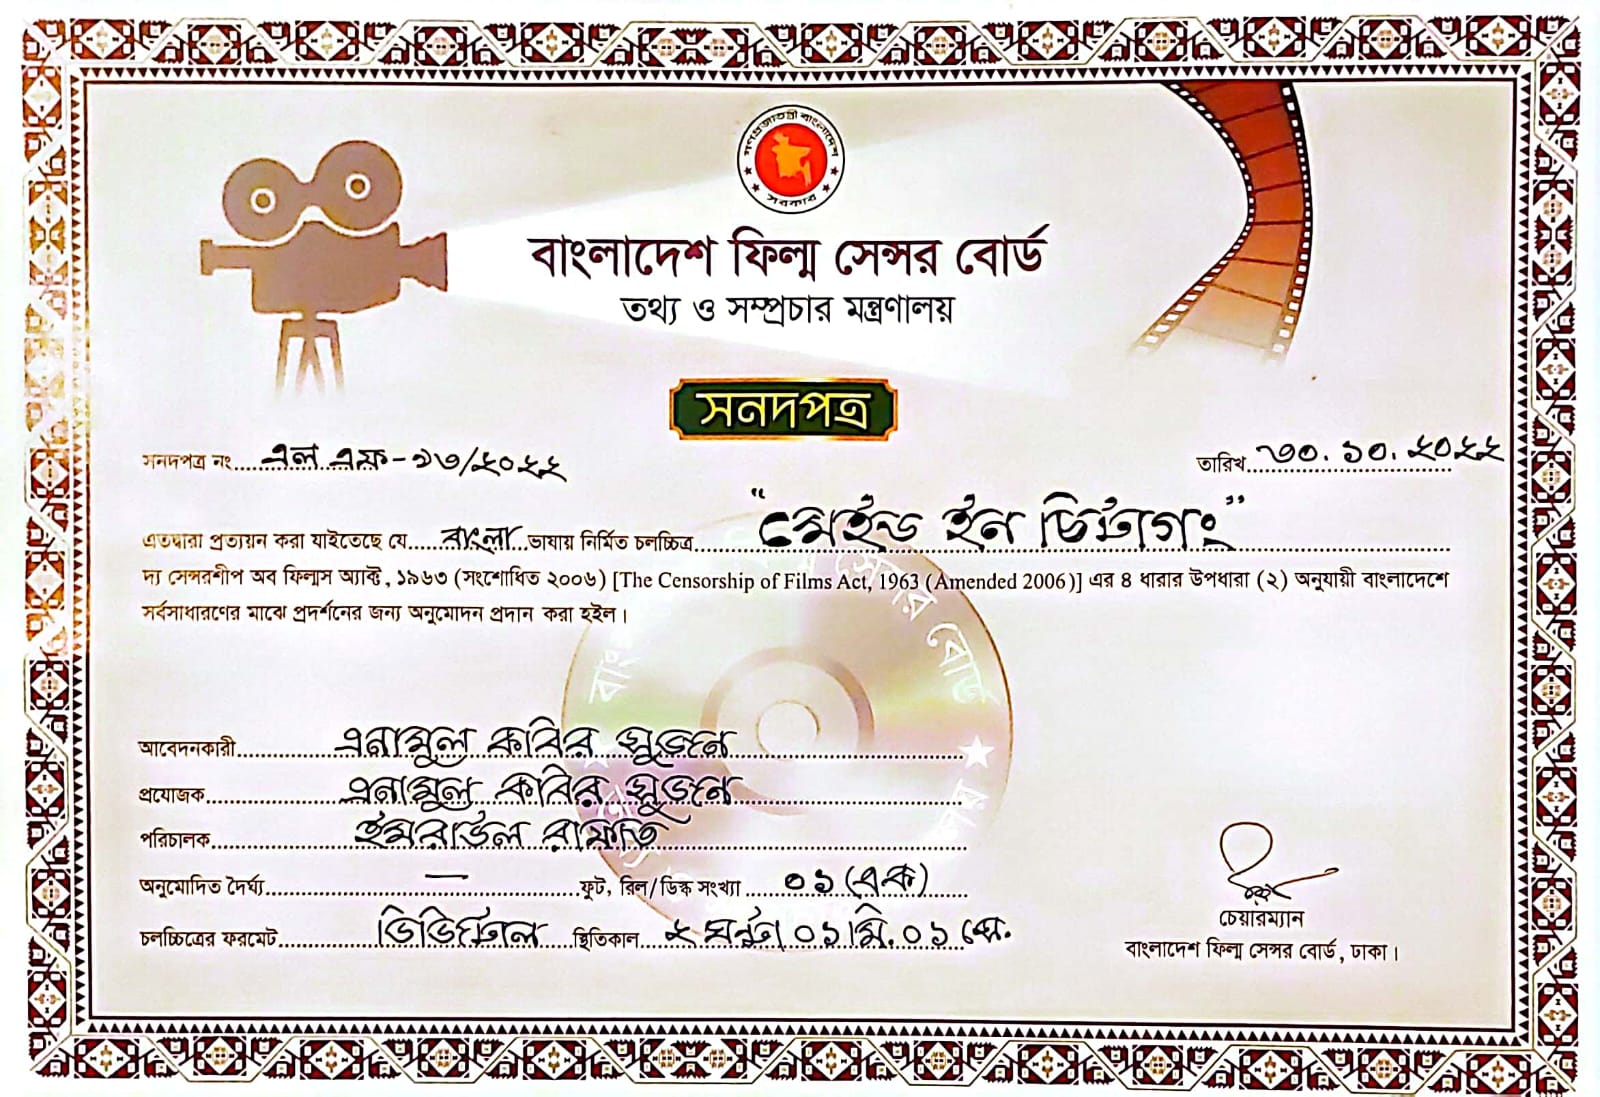 গণপ্রজাতন্ত্রী বাংলাদেশ
সরকার
বাংলাদেশ ফিল্ম সেন্সর বোর্ড
তথ্য ও সম্প্রচার মন্ত্রণালয়
সনদপত্র
সনদপত্র নং.....এল এফ-৯৩/২০২২
তারিখ ৩০.১০.২০২২
এতদ্দ্বারা প্রত্যয়ন করা যাইতেছে যে.....বাংলা...ভাষায় নির্মিত চলচ্চিত্র....."মেইড ইন চিটাগং"
দ্য সেন্সরশীপ অব ফিল্মস অ্যাক্ট, ১৯৬৩ (সংশোধিত ২০০৬) [The Censorship of Films Act, 1963 (Amended 2006)] এর ৪ ধারার উপধারা (২) অনুযায়ী বাংলাদেশে
সর্বসাধারণের মাঝে প্রদর্শনের জন্য অনুমোদন প্রদান করা হইল।
আবেদনকারী.....এনামুল কবির সুজন
প্রযোজক.....এনামুল কবির সুজন
পরিচালক.....ইমরাউল রাফাত
অনুমোদিত দৈর্ঘ্য.....—.....ফুট, রিল/ডিস্ক সংখ্যা.....০১ (এক)
চলচ্চিত্রের ফরমেট.....ডিজিটাল.....স্থিতিকাল.....২ ঘন্টা ০১ মি. ০১ সে.
চেয়ারম্যান
বাংলাদেশ ফিল্ম সেন্সর বোর্ড, ঢাকা।